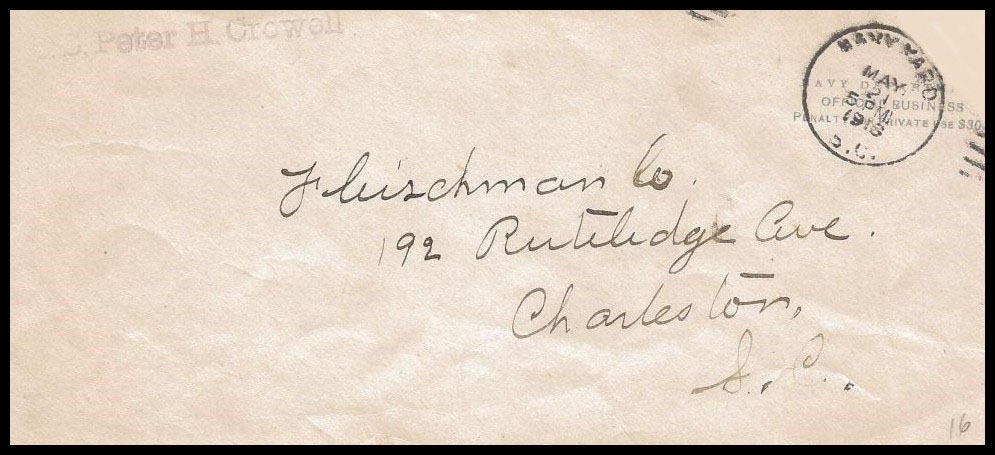 S. Peter H. Crowell
NAVY YARD
MAY
21
5 PM
S.C.
NAVY
OFFICIAL BUSINESS
PENALTY FOR PRIVATE USE $300
Fleischman Co.
192 Rutledge Ave.
Charleston,
S. C.
16